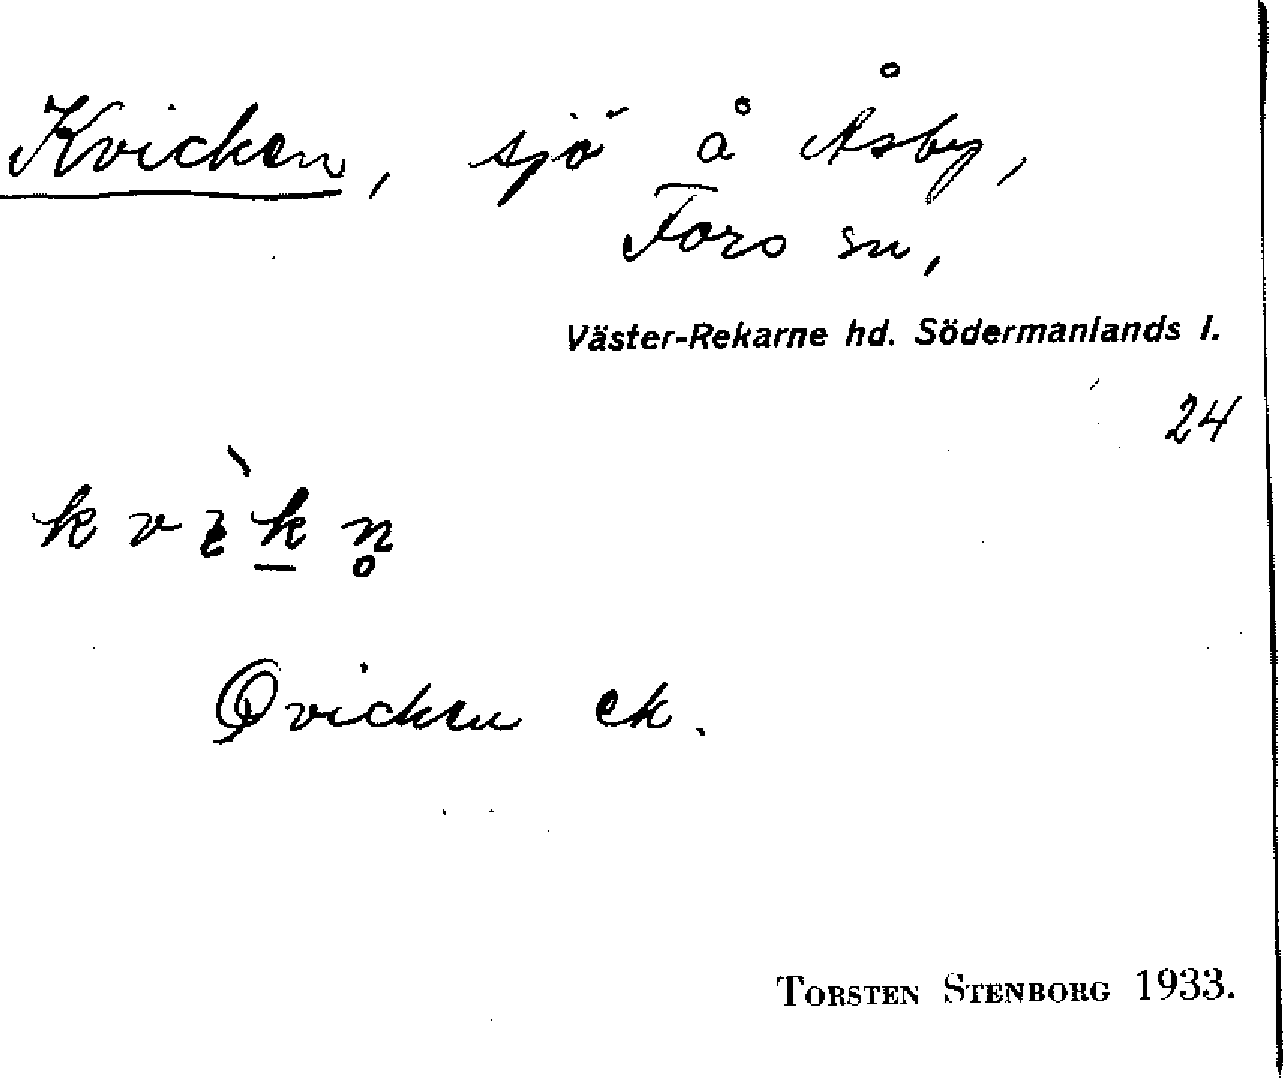 Kvicken, sjö å Åsby,
Fors sn,
Väster-Rekarne hd. Södermanlands l.
24
kvìk̲n̥
Qvicken ek.
Torsten Stenborg 1933.